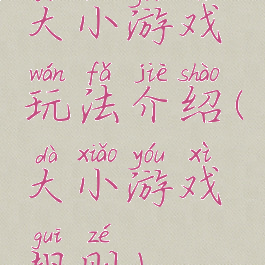 大小游戏
wán fǎ jiè shào
玩法介绍(
dà xiǎo yóu xì
大小游戏
guī zé
规则)